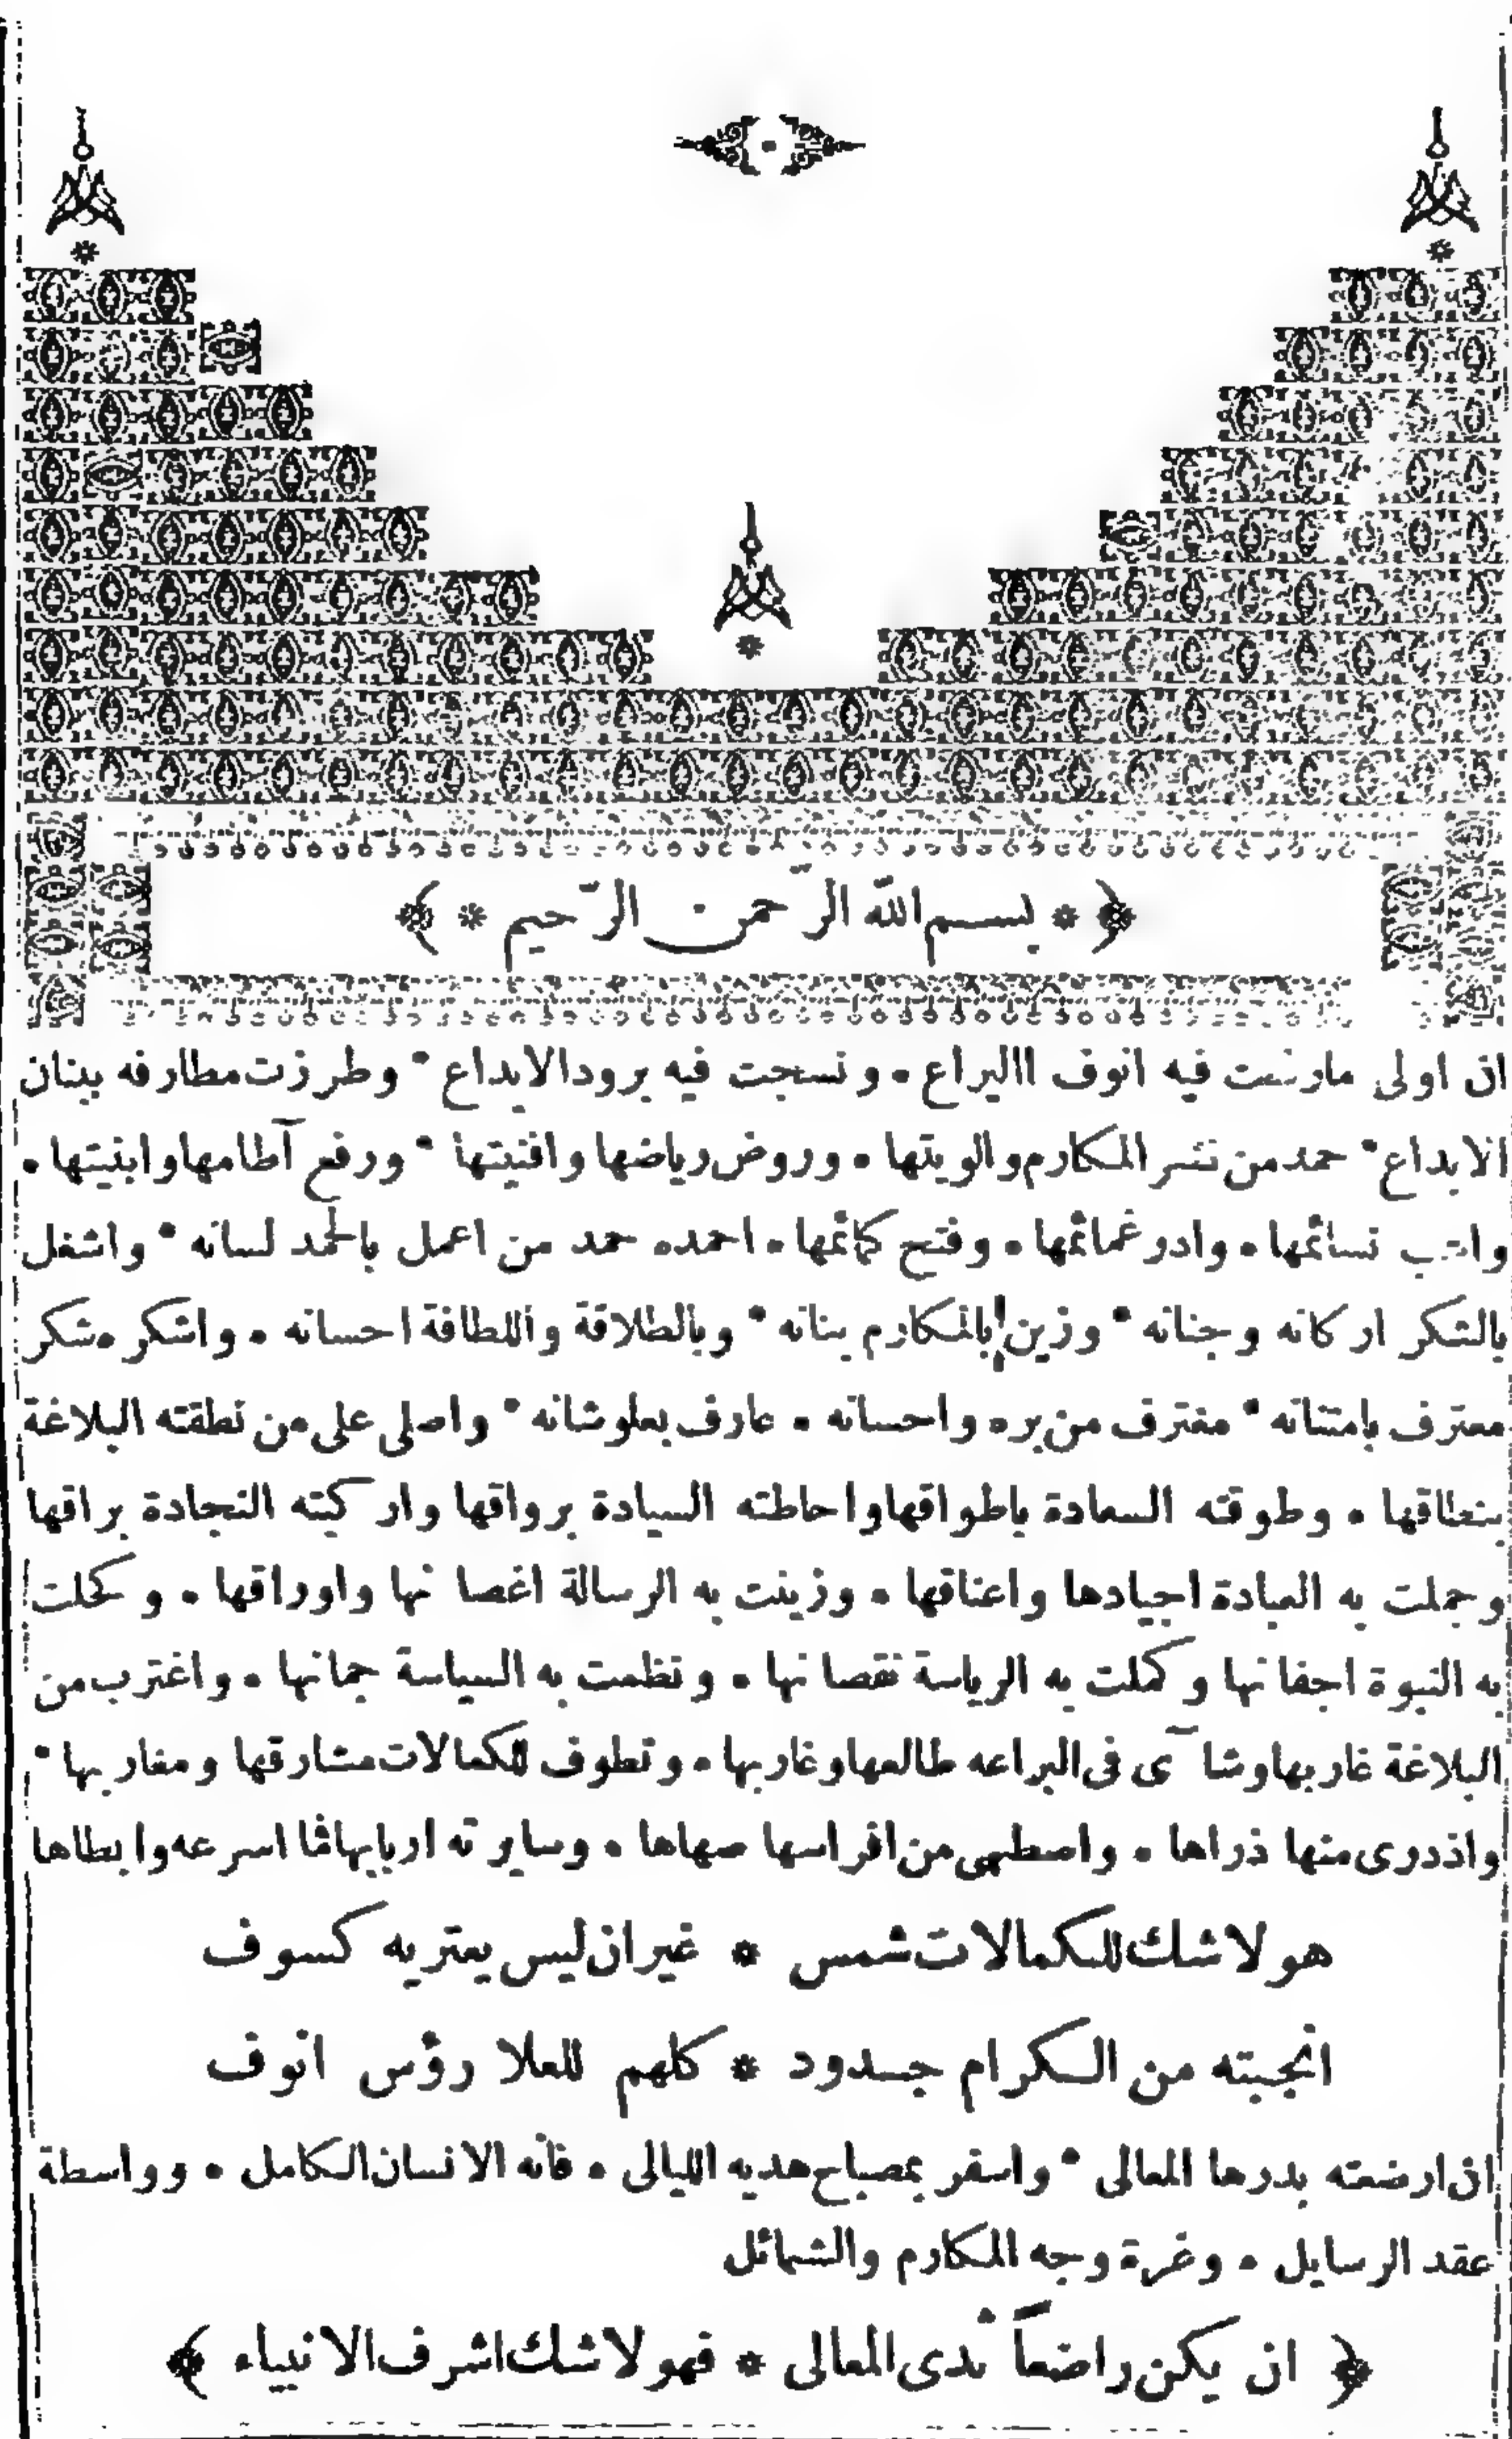 ﴿ * بسم الله الرّحمن الرّحيم * ﴾
ان اولى مارشحت فيه انوف االيراع • ونسجت فيه برود الابداع • وطرزت مطارفه ببنان
الابداع • حمد من نشر المكارم والويتها • وروض رياضها وافنيتها • ورفع آطامها وابنيتها •
نسائمها • وادر غمائمها • وفتح كمائمها • احمده حمد من اعمل بالحمد لسانه • واشغل
بالشكر اركانه وجنانه • وزين بالمكارم بنانه • وبالطلاقة واللطافة احسانه • واشكره شكر
معترف بامتنانه • مغترف من بره واحسانه • عارف بعلوشانه • واصلى على من نطقته البلاغة
بنطاقها • وطوقته السعادة باطواقها واحاطته السيادة برواقها واركبته النجادة براقها
وجملت به العبادة اجيادها واعناقها • وزينت به الرسالة اغصانها واوراقها • وكحلت
به النبوة اجفانها وكملت به الرياسة نقصانها • ونظمت به السياسة جمانها • واغترب من
البلاغة غاربها وشآى فى البراعه طالعها وغاربها • وتطوف للكمالات مشارقها ومغاربها •
واذدرى منها ذراها • واصطهى من افراسها صهاها • وسايرته اربابها فما اسرعه وابطاها
هو لاشك للكمالات شمس * غيران ليس يعتريه كسوف
انجبته من الكرام جدود * كلهم للعلا رؤس انوف
ان ارضعته بدرها المعالى • واسفر بمصباح هديه الليالى • فانه الانسان الكامل • وواسطة
عقد الرسايل • وغرة وجه المكارم والشمائل
﴿ ان يكن راضعاً ثدى المعالى * فهو لاشك اشرف الانبياء ﴾